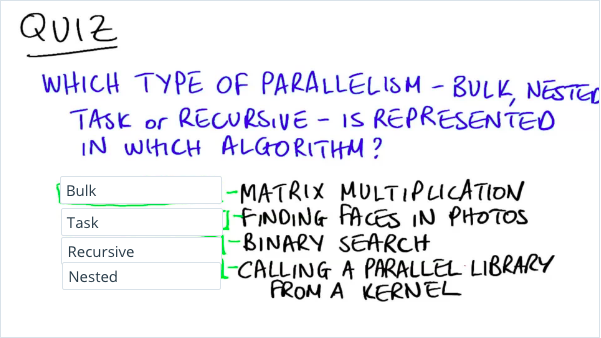 QUIZ
WHICH TYPE OF PARALLELISM - BULK, NESTED
TASK or RECURSIVE - IS REPRESENTED
IN WHICH ALGORITHM?
Bulk - MATRIX MULTIPLICATION
Task - FINDING FACES IN PHOTOS
Recursive - BINARY SEARCH
Nested - CALLING A PARALLEL LIBRARY
FROM A KERNEL